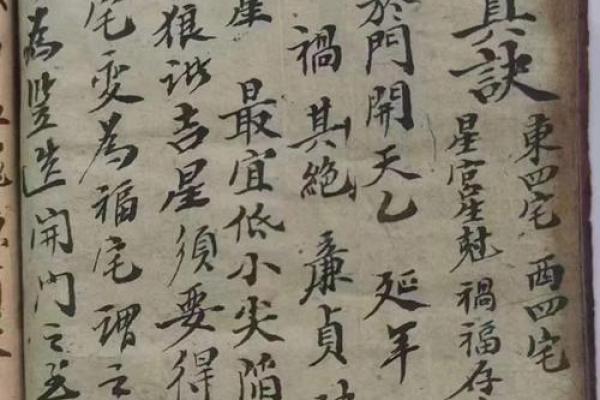 真訣
東四宅 西四宅
星宮生尅禍福存
於門開天乙 延年
禍其絕 廉貞
星 最宜低小尖陷
狼訣吉星須要得
宅變為福宅謂之
為豎造開門之